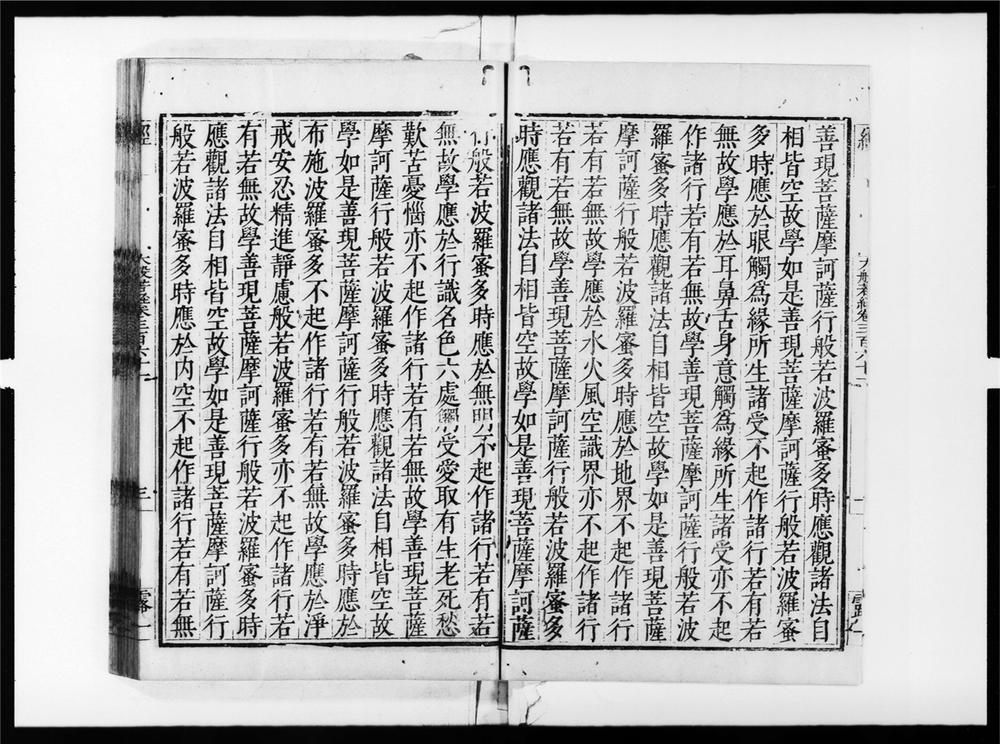 善現菩薩摩訶薩行般若波羅蜜多時應觀諸法自
相皆空故學如是善現菩薩摩訶薩行般若波羅蜜
多時應於眼觸爲緣所生諸受不起作諸行若有若
無故學應於耳鼻舌身意觸爲緣所生諸受亦不起
作諸行若有若無故學善現菩薩摩訶薩行般若波
羅蜜多時應觀諸法自相皆空故學如是善現菩薩
摩訶薩行般若波羅蜜多時應於地界不起作諸行
若有若無故學應於水火風空識界亦不起作諸行
若有若無故學善現菩薩摩訶薩行般若波羅蜜多
時應觀諸法自相皆空故學如是善現菩薩摩訶薩
行般若波羅蜜多時應於無明不起作諸行若有若
無故學應於行識名色六處觸受愛取有生老死愁
歎苦憂惱亦不起作諸行若有若無故學善現菩薩
摩訶薩行般若波羅蜜多時應觀諸法自相皆空故
學如是善現菩薩摩訶薩行般若波羅蜜多時應於
布施波羅蜜多不起作諸行若有若無故學應於淨
戒安忍精進靜慮般若波羅蜜多亦不起作諸行若
有若無故學善現菩薩摩訶薩行般若波羅蜜多時
應觀諸法自相皆空故學如是善現菩薩摩訶薩行
般若波羅蜜多時應於內空不起作諸行若有若無
經 大般若經卷三百六十二 三